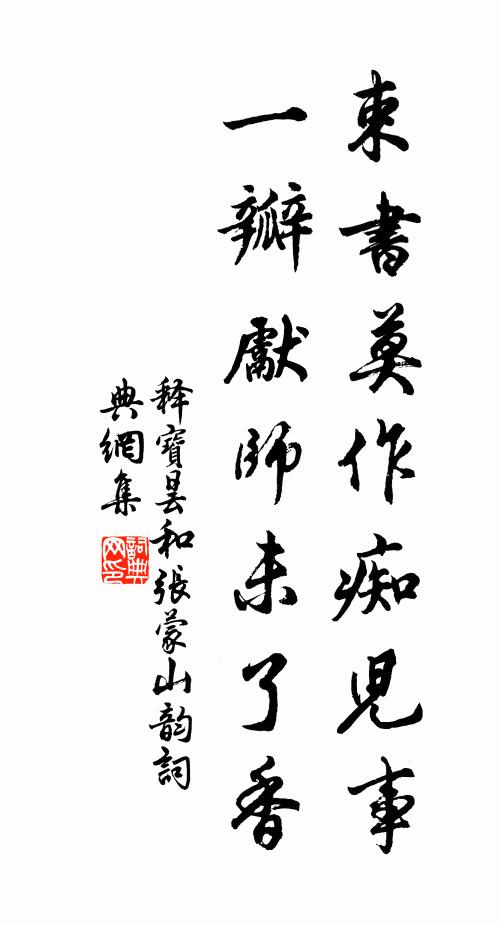 束書莫作痴児事
一瓣獻師未了香
释寶曇和張蒙山韵詞
典網集
詞典
网印